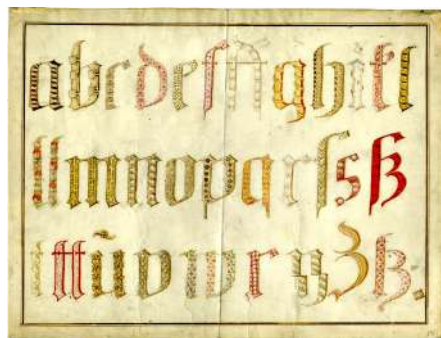 a b c d e f ff g h i k l
ll m n o p q r ſ s ß
t tt ũ v w x y z ß.